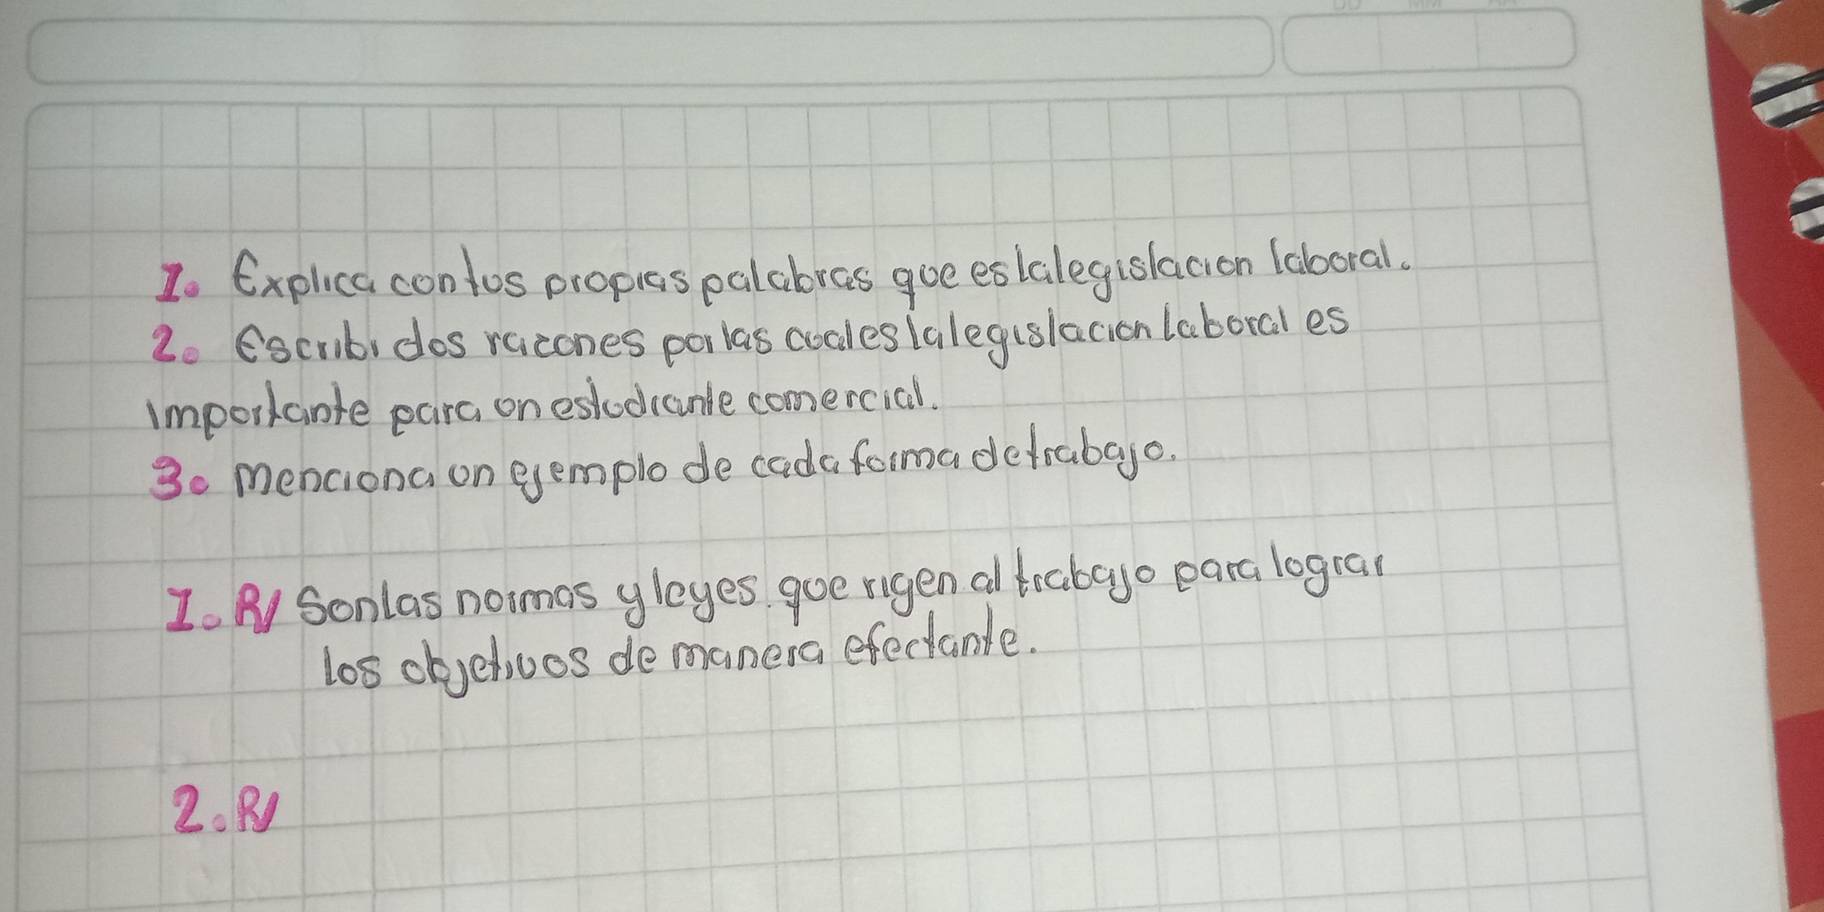 1. Explica con tus propias palabras que es la legislacion laboral.
2. Escribi dos razones por las cuales la legislacion laboral es
importante para un estudiante comercial.
3. menciona un ejemplo de cada forma de trabajo.
1. R/ Son las normas y leyes que rigen al trabajo para lograr
los objetivos de manera efectante.
2. R/